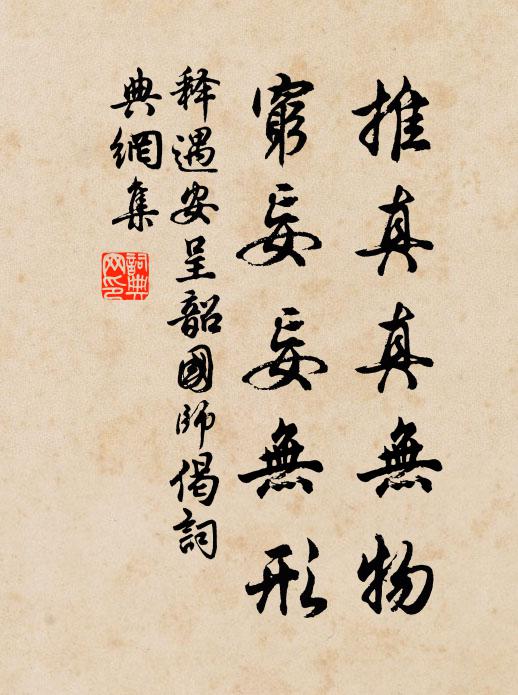 推真真無物
窮妄妄無形
释遇安呈韶國師偈詞
典網集
詞典
网印